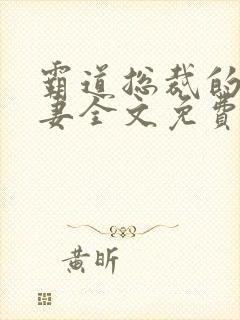 霸道总裁的
妻全文免費
黄昕